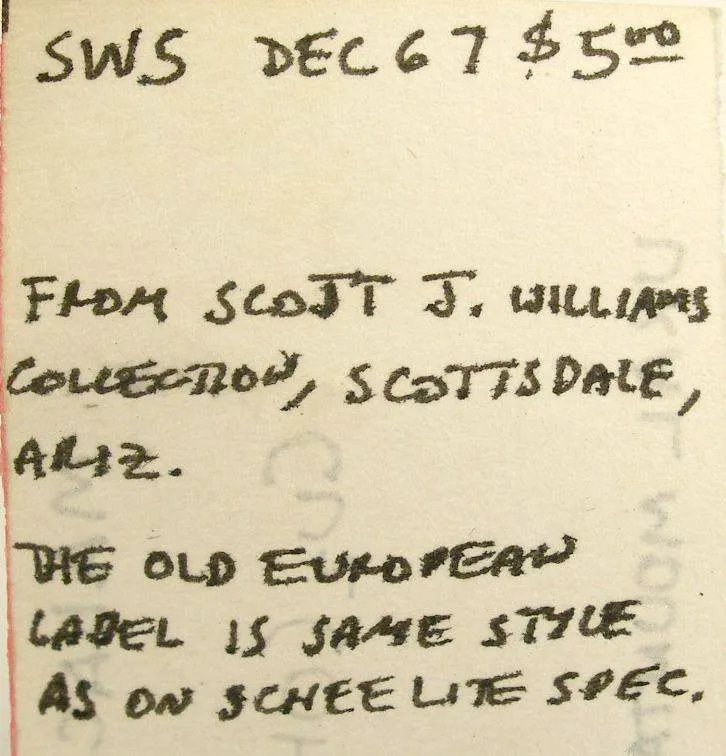 SWS DEC 67 $5.00
FROM SCOTT J. WILLIAMS
COLLECTION, SCOTTSDALE,
ARIZ.
THE OLD EUROPEAN
LABEL IS SAME STYLE
AS ON SCHEELITE SPEC.